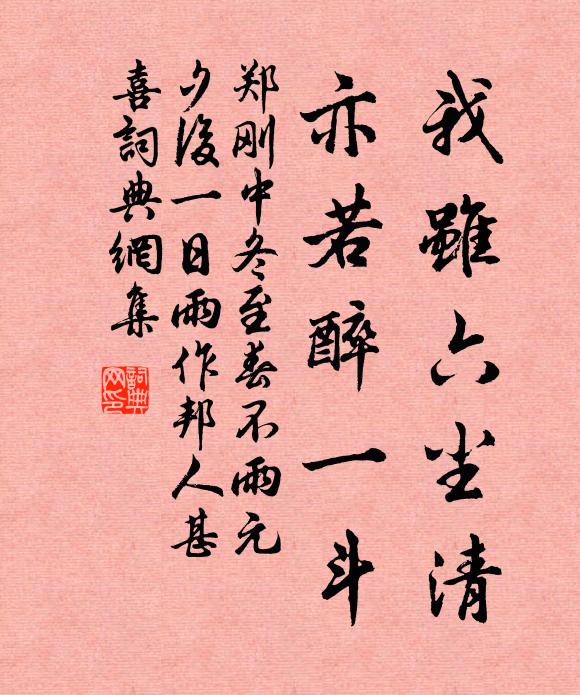 我雖六尘清
亦若醉一斗
郑刚中冬至春不雨元
夕後一日雨作邦人甚
喜詞典網集
詞典网印